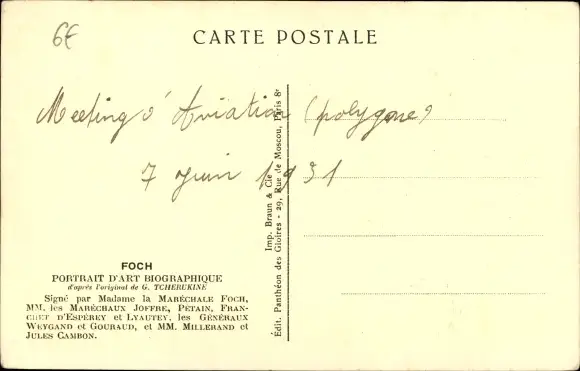 6€
CARTE POSTALE
Meeting d'Aviation (polygone)
7 juin 1931
FOCH
PORTRAIT D'ART BIOGRAPHIQUE
d'après l'original de G. TCHERUKINE
Signé par Madame la MARÉCHALE FOCH,
MM. les MARÉCHAUX JOFFRE, PÉTAIN, FRAN-
CHET D'ESPÉREY et LYAUTEY, les GÉNÉRAUX
WEYGAND et GOURAUD, et MM. MILLERAND et
JULES CAMBON.
Imp. Braun & Cie
Édit. Panthéon des Gloires - 29, Rue de Moscou, Paris 8e